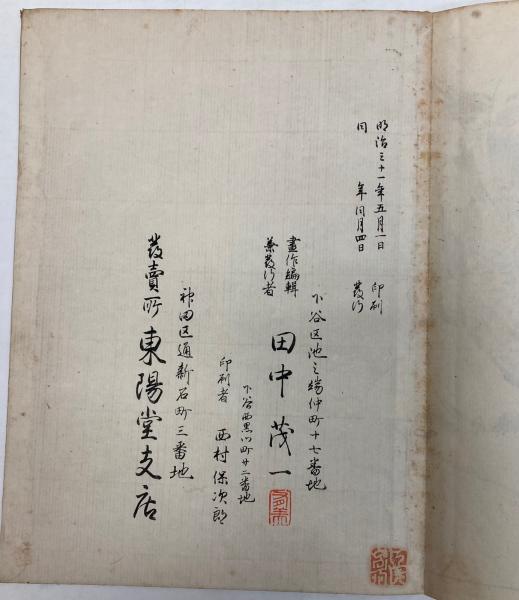 明治三十一年五月一日 印刷
同 年同月四日 發行
下谷区池之端仲町十七番地
畫作編輯
兼發行者
田中茂一
下谷西黒門町廿二番地
印刷者 西村保次郎
神田区通新石町三番地
發賣所 東陽堂支店